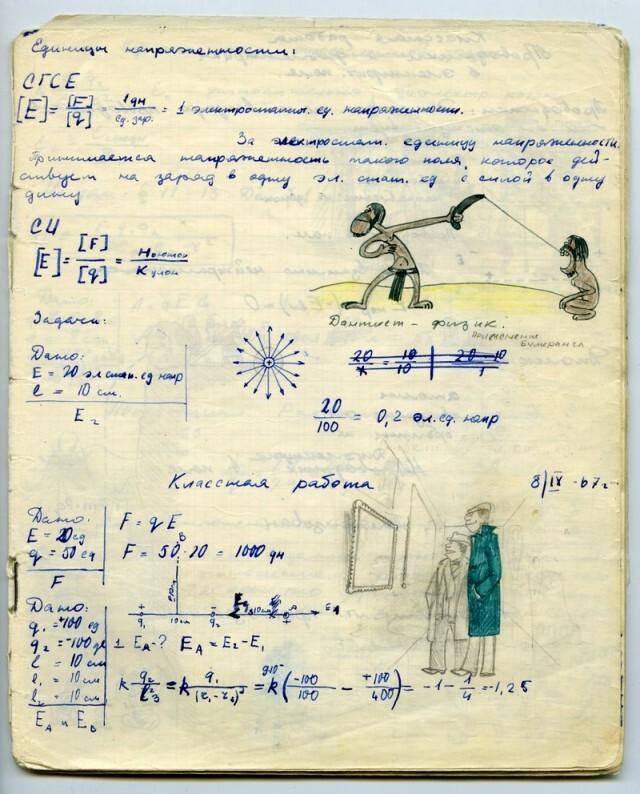 Единицы напряженности:
СГСЕ
[E] = [F]/[q] = 1дн/ед. зар. = 1 электростатич. ед. напряженности.
За электростат. единицу напряженности
принимается напряженность такого поля, которое дей-
ствует на заряд в одну эл. стат. ед с силой в одну
дину
СИ
[E] = [F]/[q] = Ньютон/Кулон
Дантист - физик.
применение
бумеранга
Задачи:
Дано:
E = 20 эл стат. ед напр
l = 10 см.
E₂
20/100 = 0,2 эл. ед. напр
Классная работа
8/IX-67г
Дано:
E = 20 ед
q = 50 ед
F
F = qE
F = 50 · 20 = 1000 дн
Дано:
q₁ = +100 ед
q₂ = -100 ед
l = 10 см
l₁ = 10 см
l₂ = 10 см
E_A и E_B
B
10см
+ q₁ 10см - q₂ 10см A E_A
1 E_A-? E_A = E₂ - E₁
= k(-100/100 - +100/400) = -1 - 1/4 = -1,25